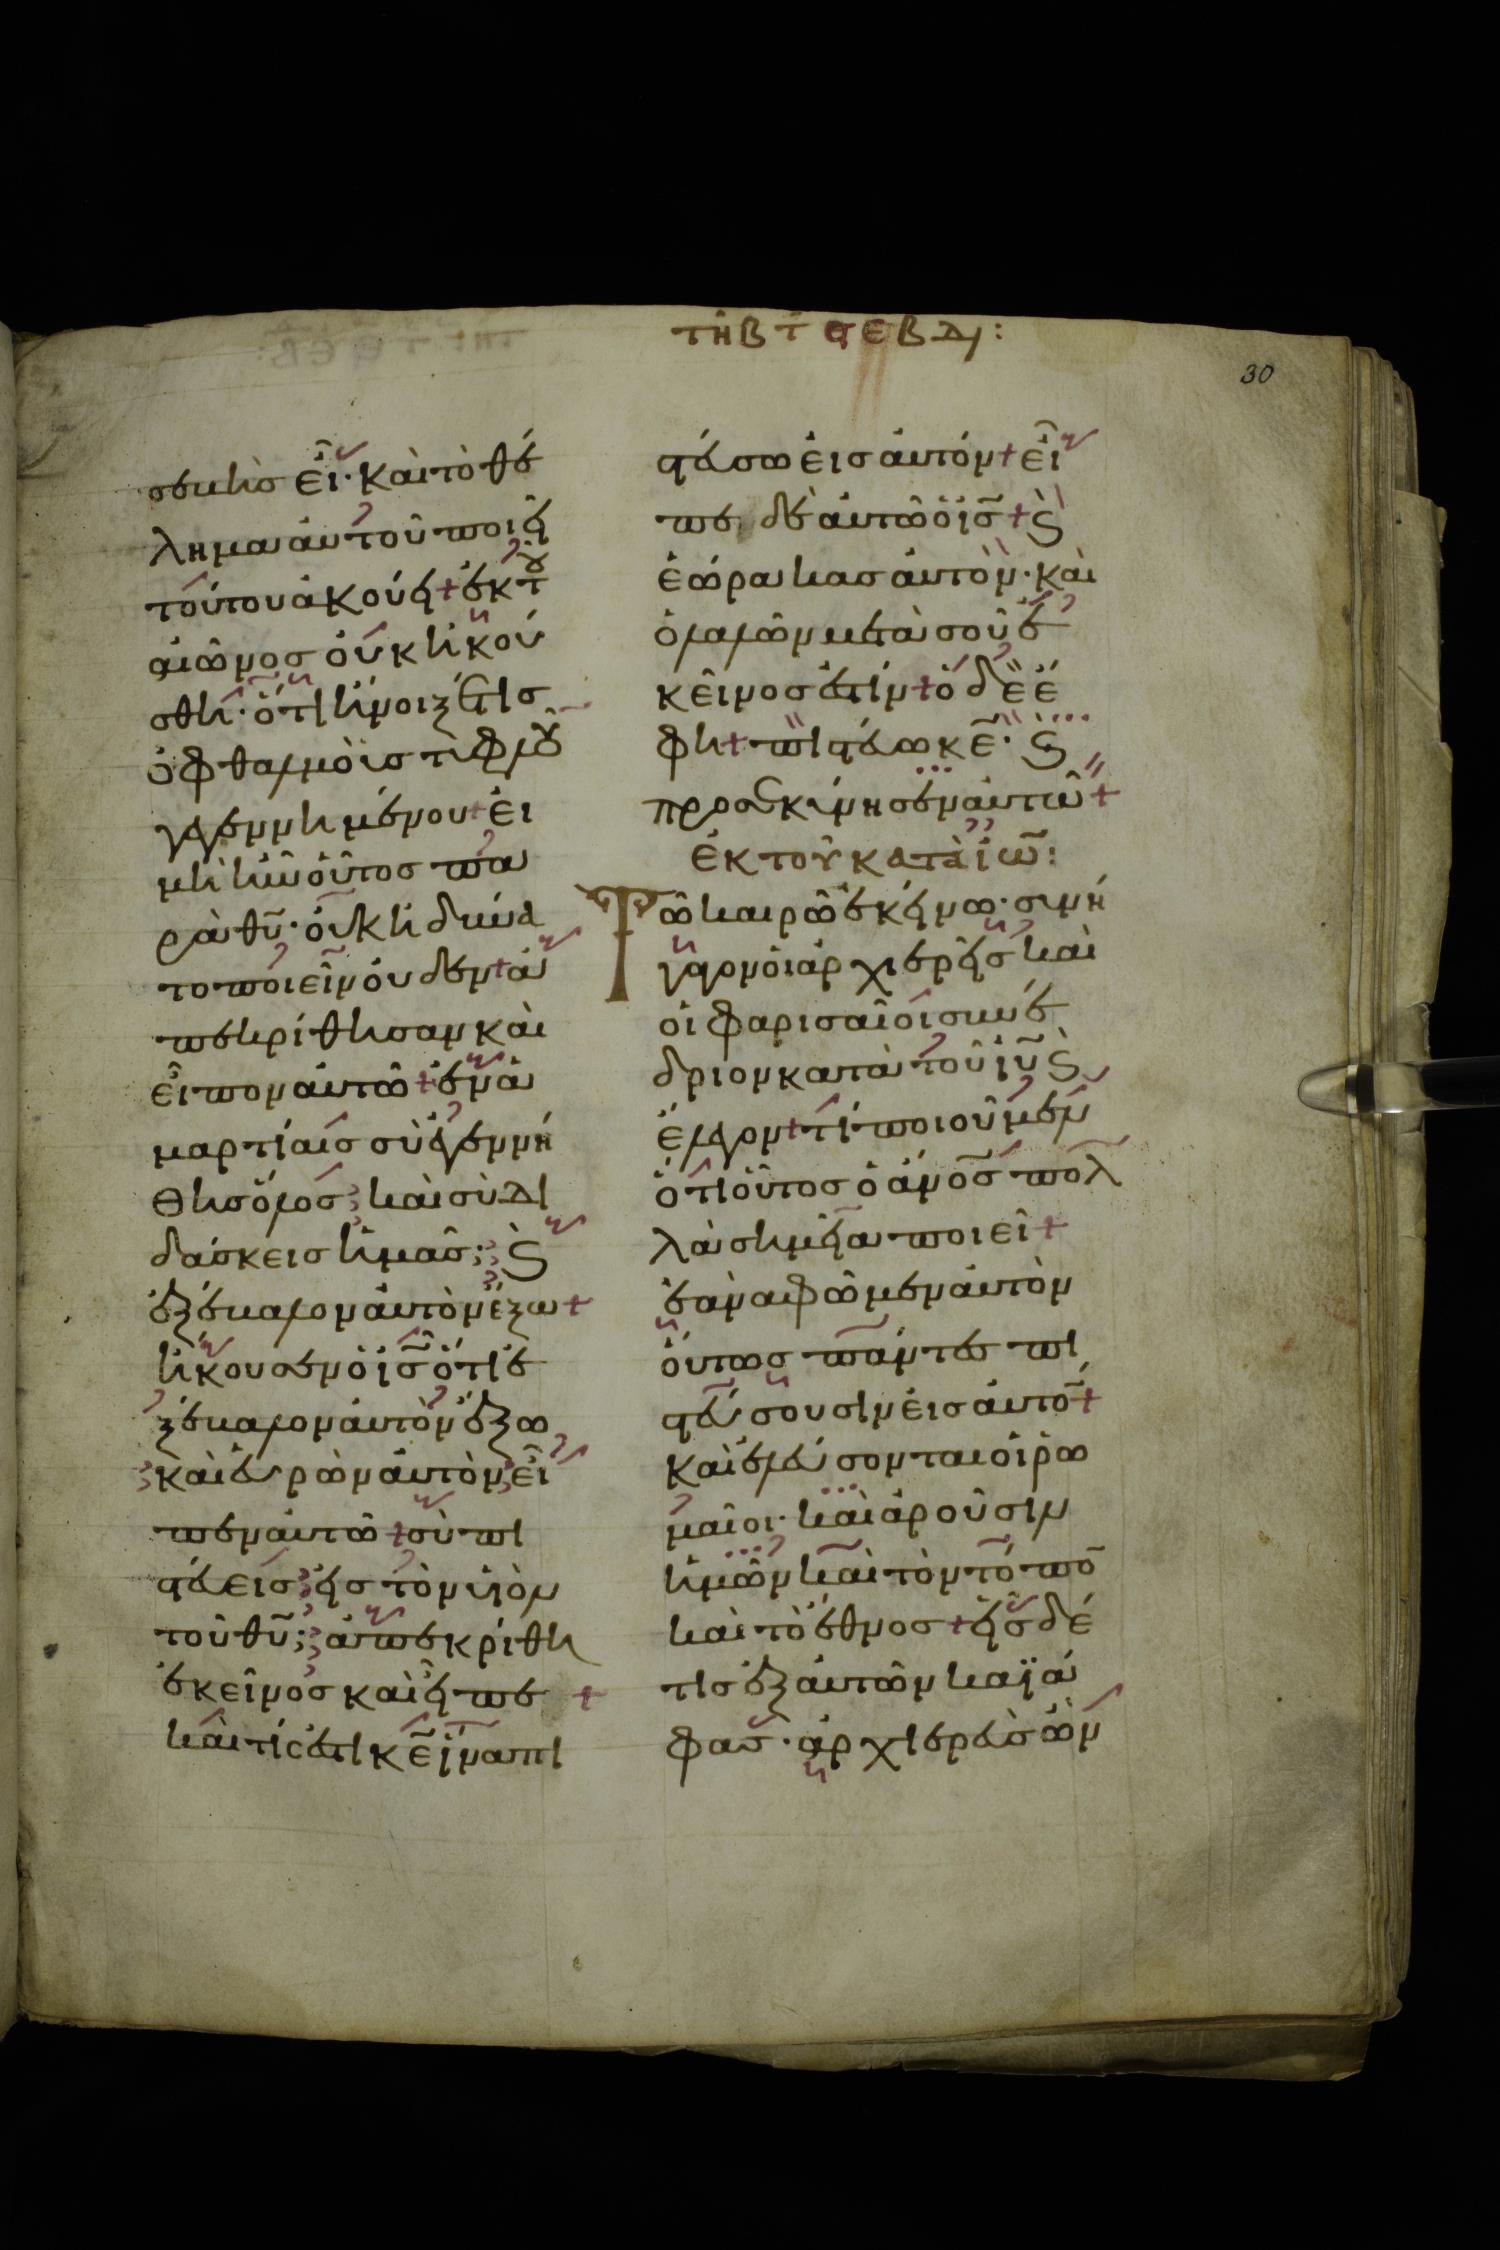 τῆ β τ ς εβδ:
30
σεβὴς εἶ· καὶ τὸ θέ
λημα αὐτοῦ ποιῆ
τούτου ἀκούει + ἐκ τοῦ
αἰῶνος οὐκ ἠκού
σθη· ὅτι ἤνοιξέ τις
ὀφθαλμοὺς τυφλοῦ
γεγεννημένου + εἰ
μὴ ἦν οὗτος πα
ρὰ θυ̅· οὐκ ἠδύνα
το ποιεῖν οὐδέν + ἀ
πεκρίθησαν καὶ
εἶπον αὐτῶ + ἐν ἁ
μαρτίαις σὺ ἐγεννή
θης ὅλος; καὶ σὺ δι
δάσκεις ἡμᾶς; ϗ
ἐξέβαλον αὐτὸν ἔξω +
ἤκουσεν ὁ ις̅ ὅτι ἐ
ξέβαλον αὐτὸν ἔξω
καὶ εὑρὼν αὐτὸν εἶ
πεν αὐτῶ + σὺ πι
στεύεις εἰς τὸν υἱὸν
τοῦ θυ̅; ἀπεκρίθη
ἐκεῖνος καὶ εἶπε +
καὶ τίς ἐστι κε̅ ἵνα πι
στεύσω εἰς αὐτόν + εἶ
πε δὲ αὐτῶ ὁ ις̅ + ϗ
ἑώρακας αὐτὸν· καὶ
ὁ λαλῶν μετὰ σοῦ ἐ
κεῖνος ἐστίν + ὁ δὲ ἔ
φη + πιστεύω κε̅· ϗ
προσεκύνησεν αὐτῶ +
ἐκ τοῦ κατὰ ἰω̅:
Τῶ καιρῶ ἐκείνω· συνή
γαγον οἱ ἀρχιερεῖς καὶ
οἱ φαρισαῖοι συνέ
δριον κατὰ τοῦ ιυ̅ ϗ
ἔλεγον + τί ποιοῦμεν
ὅτι οὗτος ὁ ἀνο̅ς πολ
λὰ σημεῖα ποιεῖ +
ἐὰν ἀφῶμεν αὐτὸν
οὕτως πάντες πι
στεύσουσιν εἰς αὐτό̅ +
καὶ ἐλεύσονται οἱ ῥω
μαῖοι· καὶ ἀροῦσιν
ἡμῶν καὶ τὸν τόπο̅
καὶ τὸ ἔθνος + εἷς δέ
τις ἐξ αὐτῶν καϊά
φας· ἀρχιερεὺς ὢν